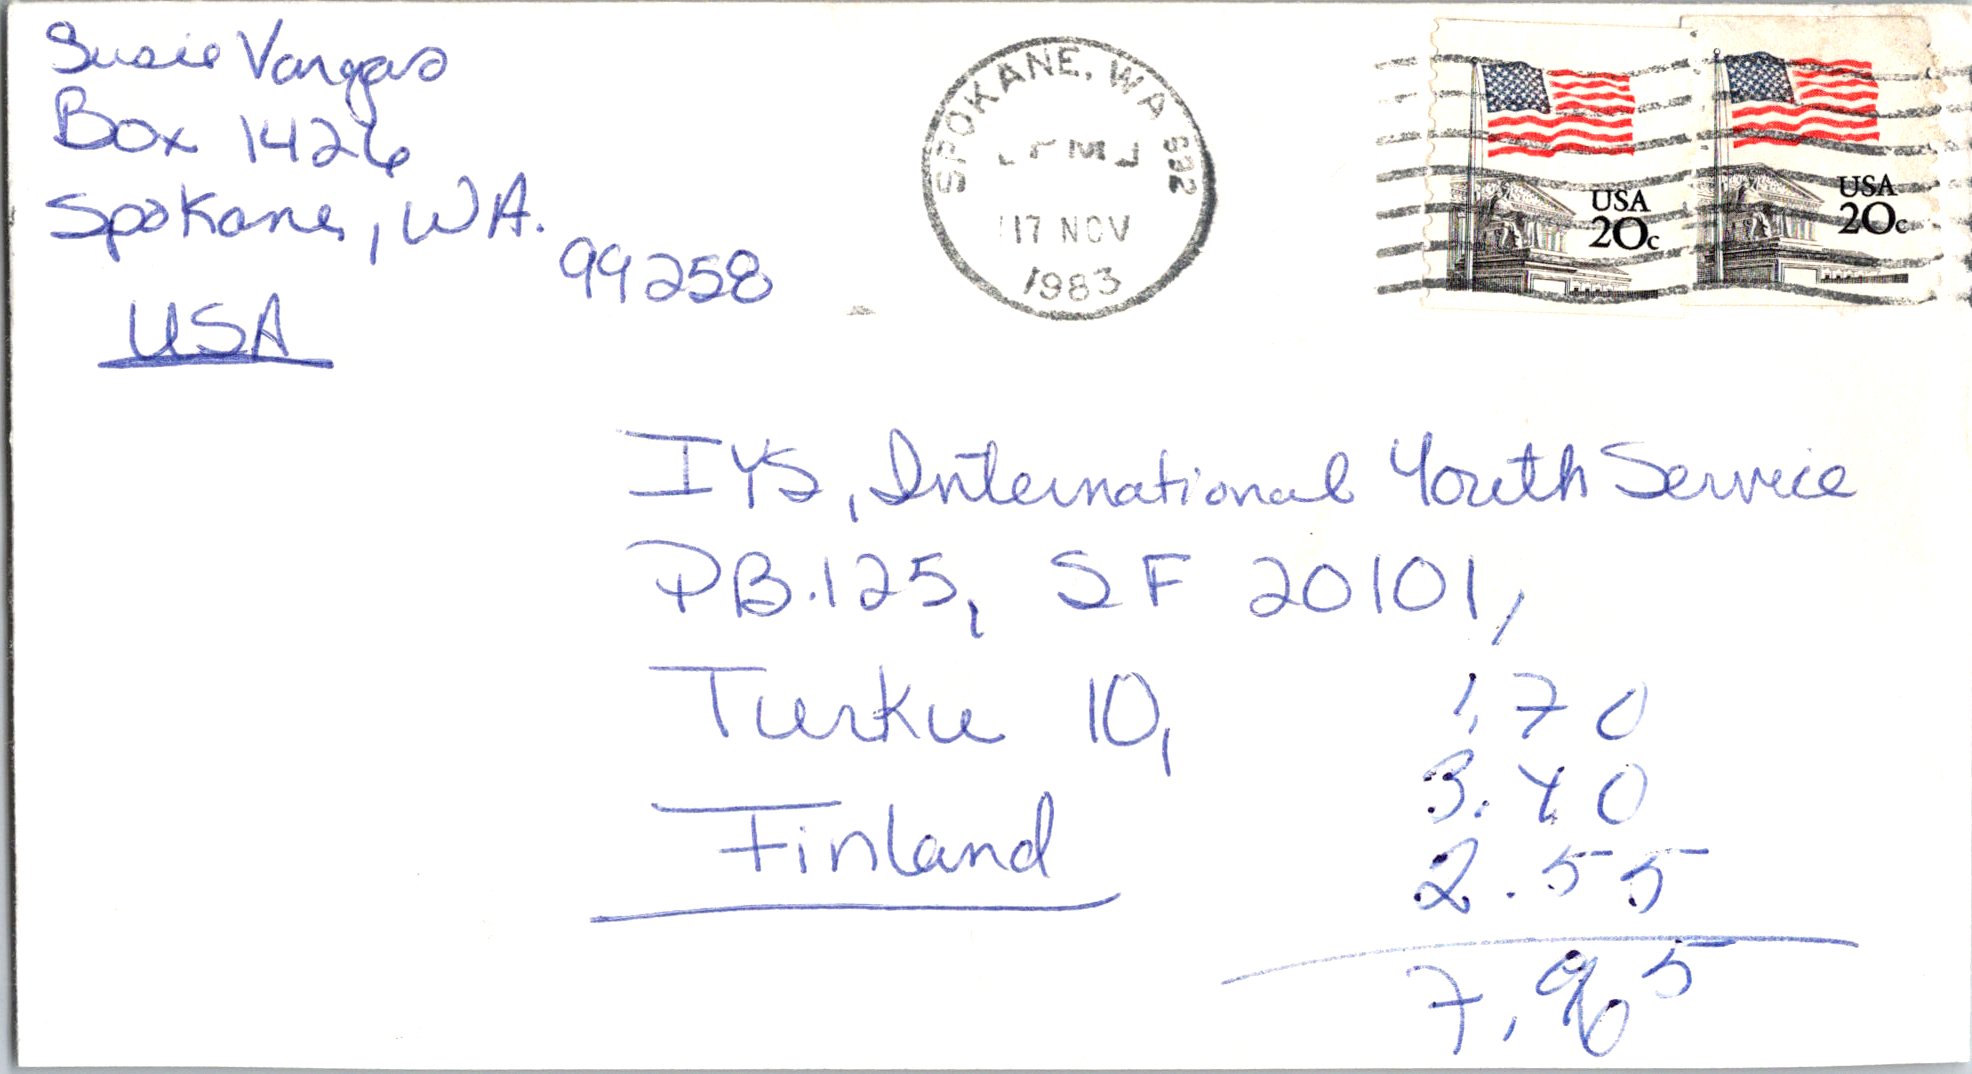 Susie Vargas
Box 1426
Spokane, WA.
99258
USA
SPOKANE, WA 992
PM
17 NOV
1983
USA
20c
USA
20c
IYS, International Youth Service
PB.125, SF 20101,
Turku 10,
Finland
1,70
3.40
2.55
7,65